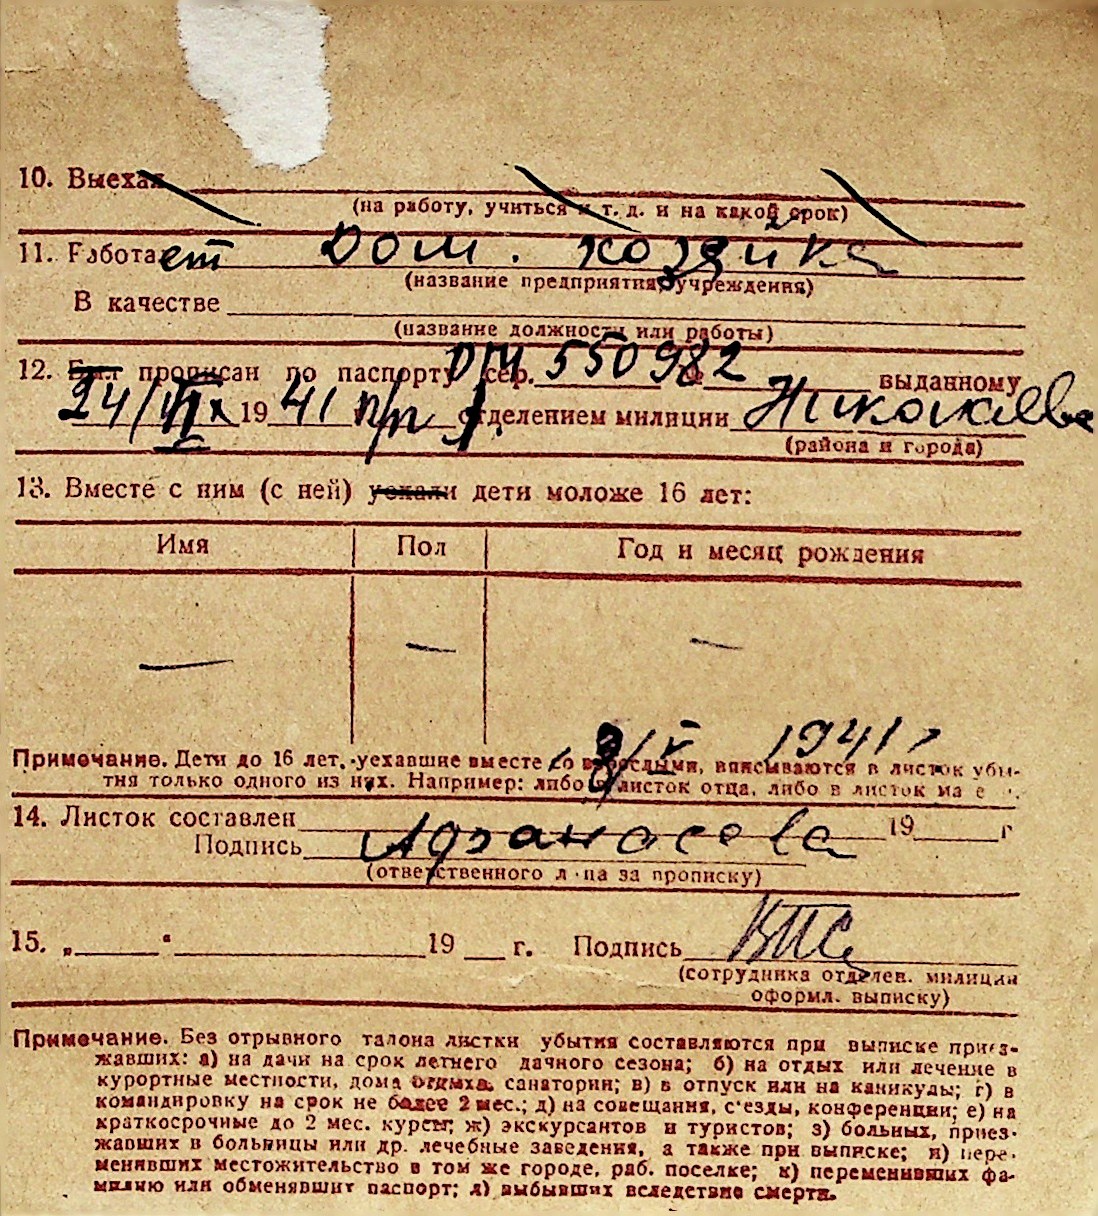 10. Выехал
(на работу, учиться и т. д. и на какой срок)
11. Работает Дом. хозяйка
(название предприятия, учреждения)
В качестве
(название должности или работы)
12. Был прописан по паспорту сер. 550982 № выданному
24/ 1941 п/п 1 отделением милиции Николаева
(района и города)
13. Вместе с ним (с ней) уехали дети моложе 16 лет:
Имя Пол Год и месяц рождения
— — —
8/V 1941 г
Примечание. Дети до 16 лет, уехавшие вместе со взрослыми, вписываются в листок убы-
тия только одного из них. Например: либо в листок отца, либо в листок
14. Листок составлен 19 г
Подпись Афанасева
(ответственного лица за прописку)
15. „ “ 19 г. Подпись
(сотрудника отделен. милиции
оформл. выписку)
Примечание. Без отрывного талона листки убытия составляются при выписке приез-
жавших: а) на дачи на срок летнего дачного сезона; б) на отдых или лечение в
курортные местности, дома отдыха, санатории; в) в отпуск или на каникулы; г) в
командировку на срок не более 2 мес.; д) на совещания, с'езды, конференции; е) на
краткосрочные до 2 мес. курсы; ж) экскурсантов и туристов; з) больных, приез-
жавших в больницы или др. лечебные заведения, а также при выписке; и) пере-
менявших местожительство в том же городе, раб. поселке; к) переменивших фа-
милию или обменявшит паспорт; л) выбывших вследствие смерти.